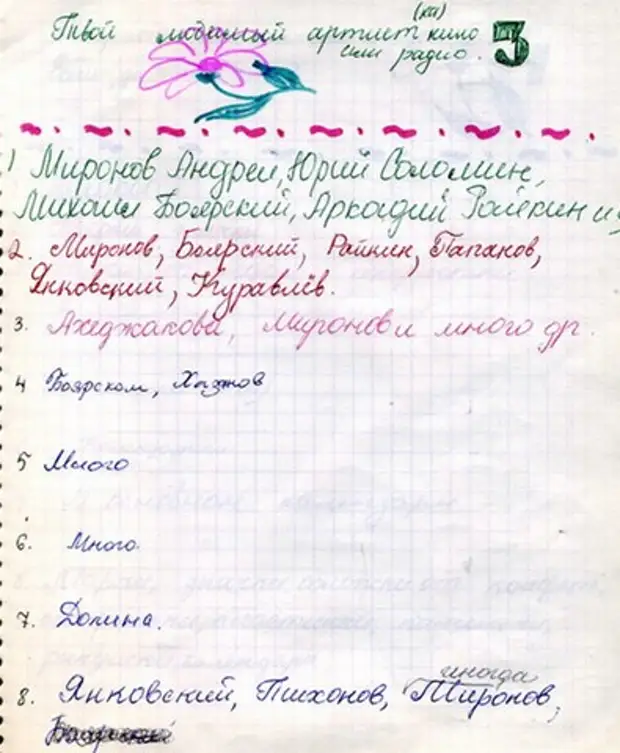 Твой любимый артист (ка) кино 3
или радио.
1 Миронов Андрей, Юрий Соломин,
Михаил Боярский, Аркадий Райкин и
2. Миронов, Боярский, Райкин, Папанов,
Янковский, Куравлёв.
3. Ахеджакова, Миронов и много др.
4 Боярском, Хазанов
5 Много
6. Много.
7. Долина.
иногда
8. Янковский, Тихонов, Миронов,